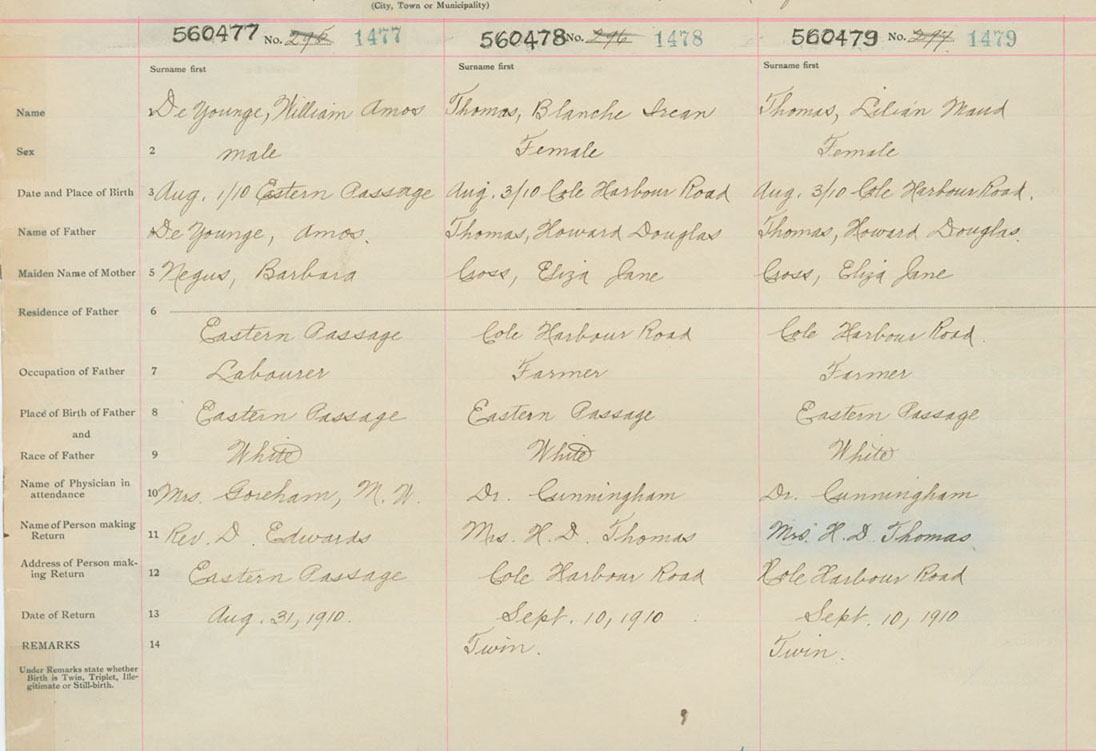 (City, Town or Municipality)
560477 No. 295 1477 560478 No. 296 1478 560479 No. 297 1479
Surname first Surname first Surname first
Name 1 De Younge, William Amos Thomas, Blanche Irean Thomas, Lilian Maud
Sex 2 male Female Female
Date and Place of Birth 3 Aug. 1/10 Estern Passage Aug. 3/10 Cole Harbour Road Aug. 3/10 Cole Harbour Road.
Name of Father 4 De Younge, Amos. Thomas, Howard Douglas Thomas, Howard Douglas.
Maiden Name of Mother 5 Negus, Barbara Cross, Eliza Jane Cross, Eliza Jane
Residence of Father 6
Eastern Passage Cole Harbour Road Cole Harbour Road.
Occupation of Father 7 Labourer Farmer Farmer
Place of Birth of Father 8 Eastern Passage Eastern Passage Eastern Passage
and
Race of Father 9 White White White
Name of Physician in
attendance 10 Mrs. Goreham, M. W. Dr. Cunningham Dr. Cunningham
Name of Person making
Return 11 Rev. D. Edwards Mrs. H. D. Thomas Mrs. H. D. Thomas
Address of Person mak-
ing Return 12 Eastern Passage Cole Harbour Road Cole Harbour Road
Date of Return 13 Aug. 31, 1910. Sept. 10, 1910 Sept. 10, 1910
REMARKS 14 Twin. Twin.
Under Remarks state whether
Birth is Twin, Triplet, Ille-
gitimate or Still-birth.